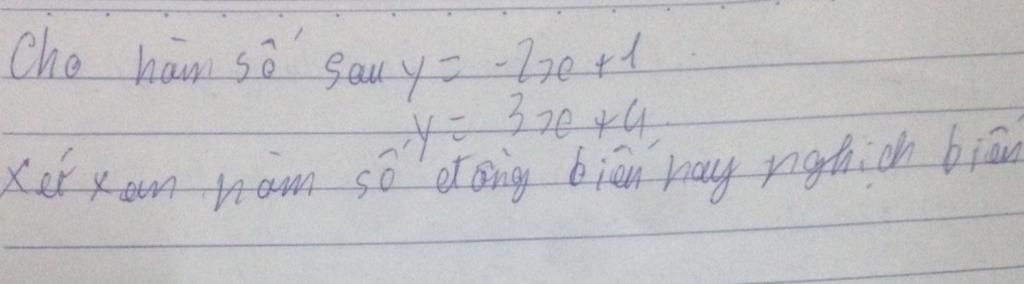 Cho hàm số sau y = -2x + 1
y = 3x + 4
xét xan hàm số đồng biến hay nghịch biến